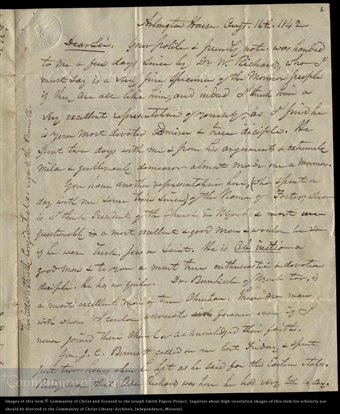 1
Arlington House Aug. 16th. 1842
Dear Sir. Your polite & friendly note was handed
to me a few days since by Dr W. Richards, who I
must say is a very fine specimen of the Mormon people
if they are all like him, and indeed I think him a
very excellent representation of yourself, as I find he
is your most devoted admirer & true disciple. He
spent two days with me & from his arguments & extremely
mild & gentlemanly demeanor almost made me a Mormon.
You have another representation here, (who spent a
day with me some time since) of the name of Foster, who
is I think President of the Church & Myork & most
& a most excellent & good man & would be so
if he were Turk, Jew or Saint. He is Ab initio a
good man & to you a most true enthusiastic & devoted
disciple. he has no guile. Dr. Bernhisel of New York too, is
a most excellent man & true Christian. These are men
with whom I could associate forever even if I
never joined their Church or acknowledged their faith.
Gen J. C. Bennett called on me last Friday & spent
just two hours when he left as he said for the Eastern States.
Being aware that Elder Richards was here he had very little to say.
Images of this item © Community of Christ and licensed to the Joseph Smith Papers Project. Inquiries about high-resolution images of this item for scholarly use
should be directed to the Community of Christ Library-Archives, Independence, Missouri.